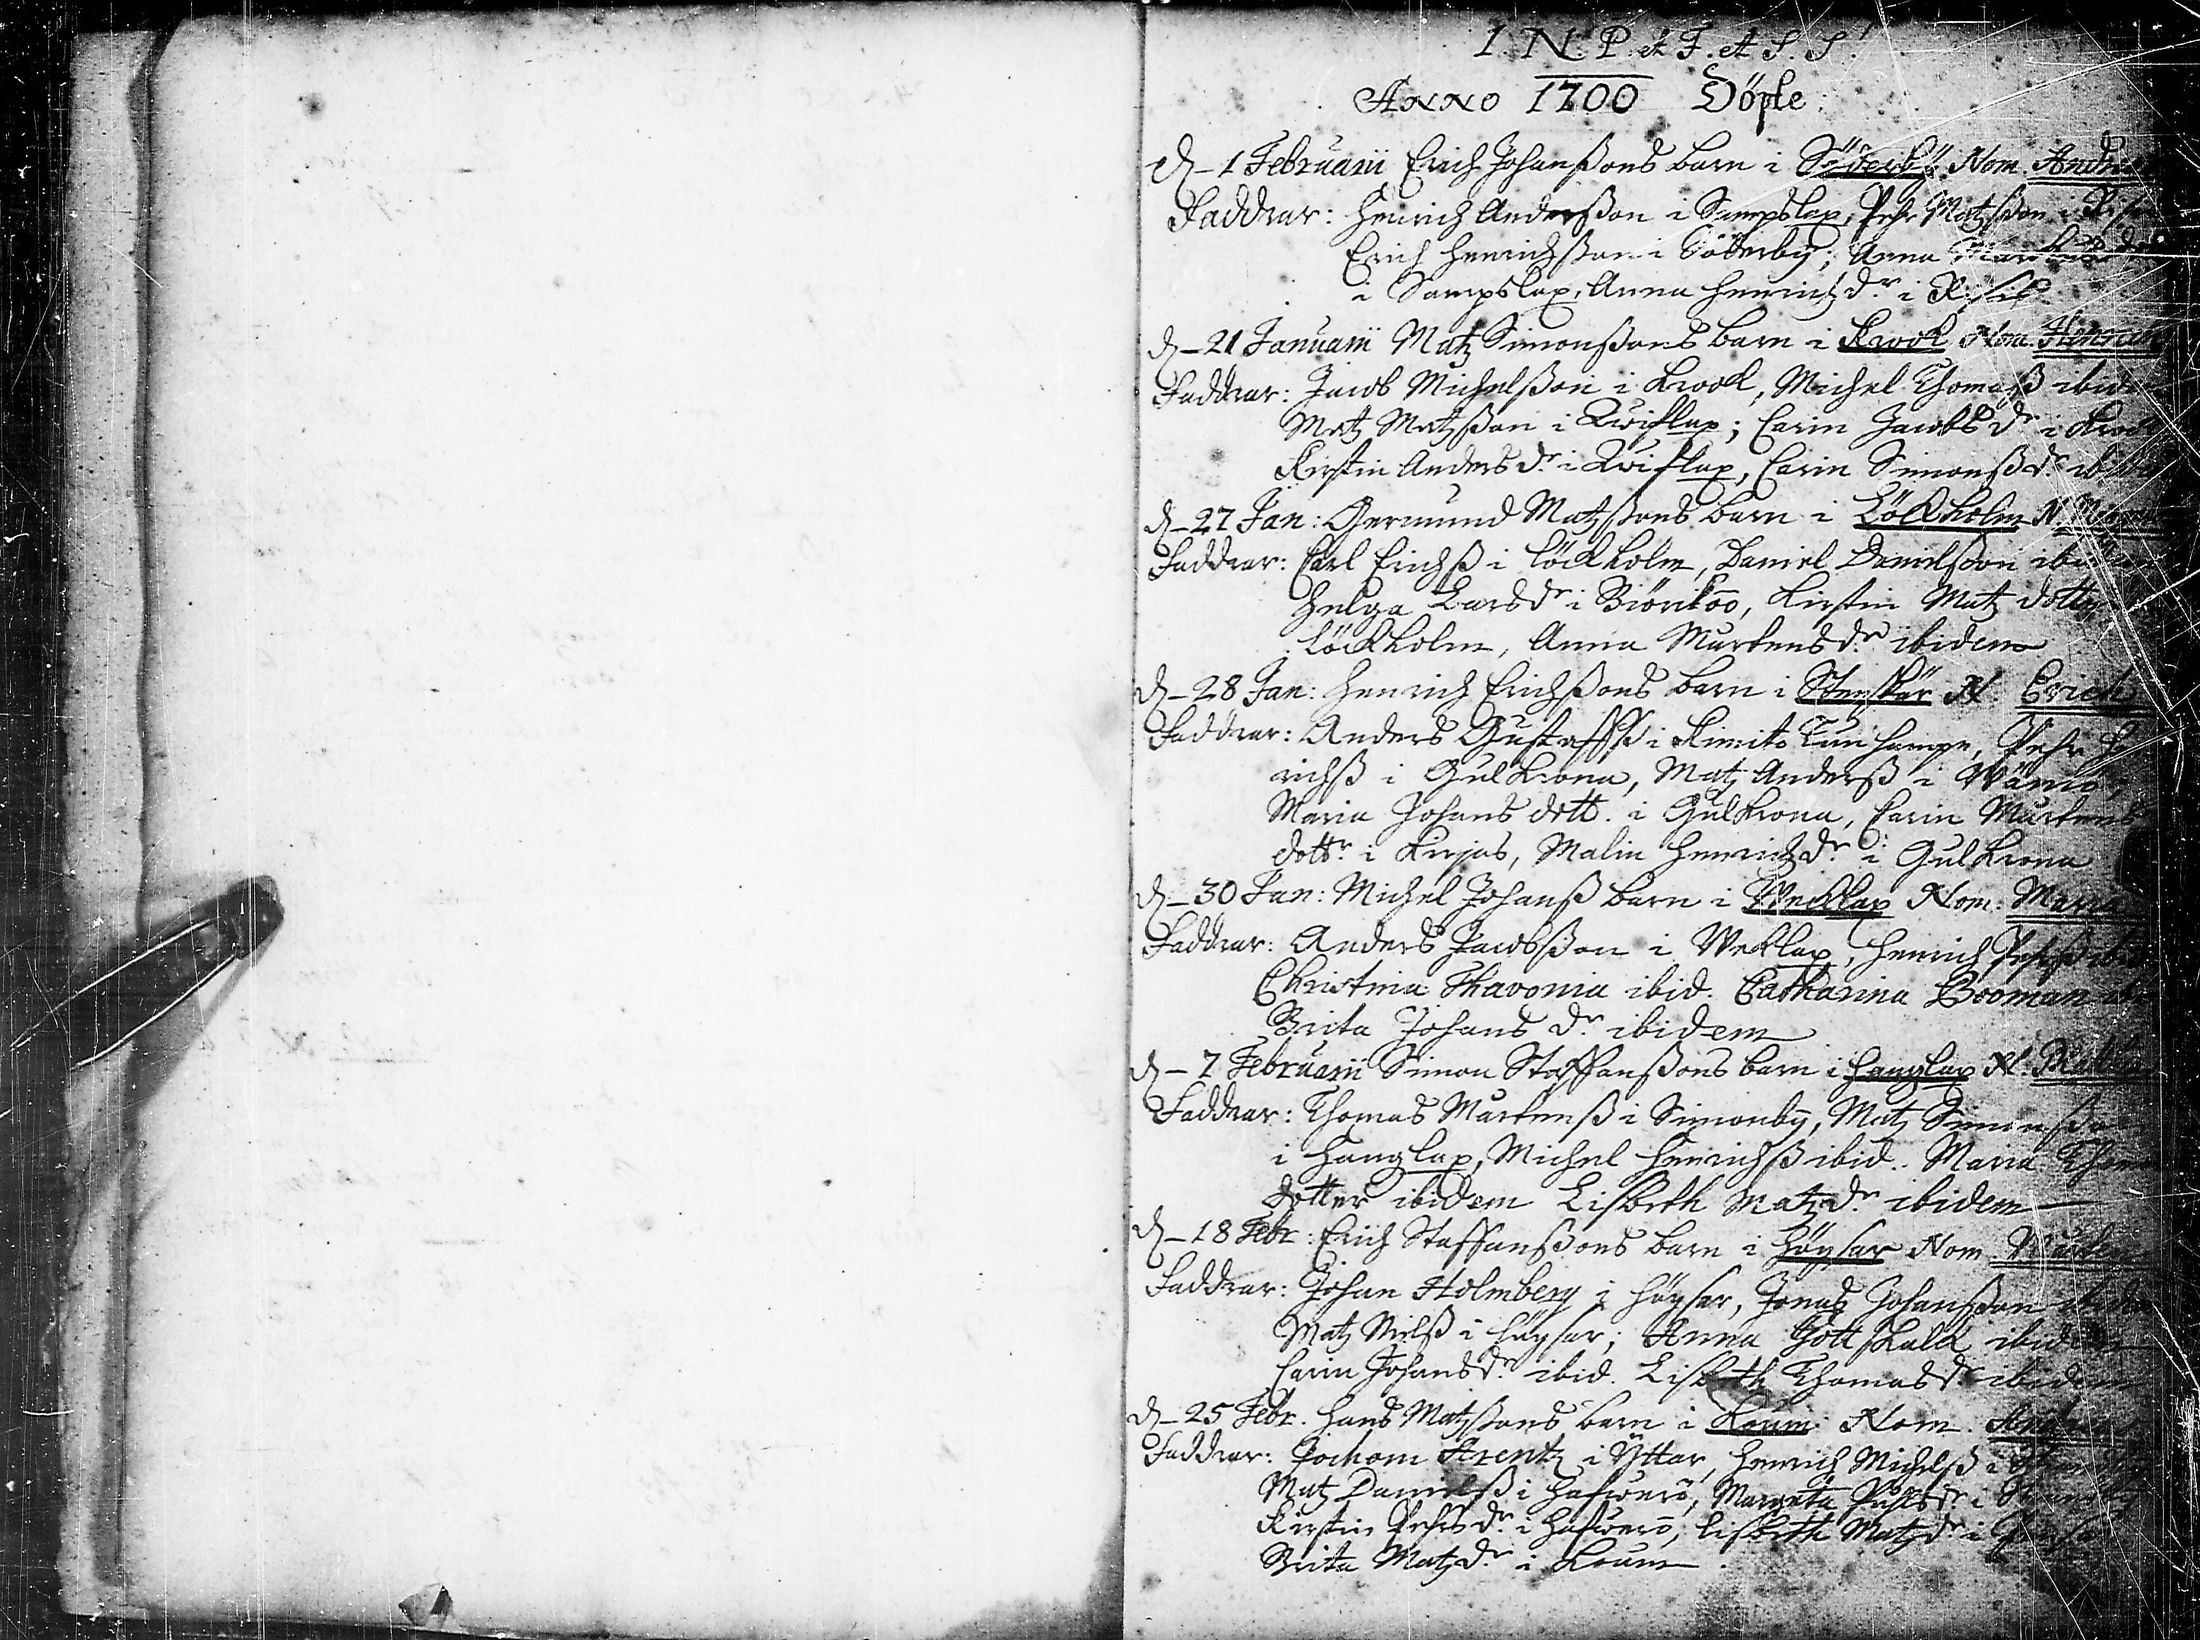 I. N. P. et F. et S. S.
Anno 1700 Döpte
d. 1 Februarii Erich Johanßons barn i Söderby. Nom. Andreas
Faddrar: Henrich Anderßon i Sampslax, Pehr Matzßon i
Erich Henrichßon i Söderby; Anna
i Sampslax, Anna Henrichz dr i
d. 21 Januarii Matz Simonßons barn i Krook Nom. Henrich
Faddrar: Jacob Michelßon i Krook, Michel Thomaß ibidem
Matz Matzßon i Kvislax; Carin Jacobs dr i Krook
Kirstin Anders dr i Kvislax, Carin Simonß dr
d. 27 Jan: Germund Matzßons barn i Löckholm N.
Faddrar: Carl Erichß i Löckholm, Daniel Danielßon
Helga Lars dr i Biörköö, Kirstin Matz dotter
Löckholm, Anna Martens dr ibidem
d. 28 Jan: Henrich Erichßons barn i Stenskär N. Erich
Faddrar: Anders Gustafß i Kimito, Pehr
richß i Gulkrona, Matz Anderß i Wänö,
Maria Johans dott. i Gulkrona, Carin Martens
dottr i Kirjas, Malin Henrichz dr i Gulkrona
d. 30 Jan: Michel Johanß barn i Wecklax Nom. Maria
Faddrar: Anders Jacobßon i Wecklax, Henrich Pehrß
Christina Thavonia ibid. Catharina Booman
Brita Johans dr ibidem
d. 7 Februarii Simon Staffanßons barn i Hanglax N.
Faddrar: Thomas Martenß i Simonby, Matz Simonßon
i Hanglax, Michel Henrichß ibid. Maria
dotter ibidem Lisbeth Matz dr ibidem
d. 18 Febr: Erich Staffanßons barn i Högsar Nom.
Faddrar: Johan Holmberg i Högsar, Jonas Johanßon
Matz Nilß i Högsar; Anna Gottskalk ibidem
Carin Johans dr ibid. Lisbeth Thomas dr ibidem
d. 25 Febr. Hans Matzßons barn i Koum Nom.
Faddrar: Jochom Arentz i Yttar, Henrich Michelß i
Matz Danielß i Hafwerö, Margeta Påhls dr i
Kirstin Pehrs dr i Hafwerö, Lisbeth Matz dr i
Brita Matz dr i Koum